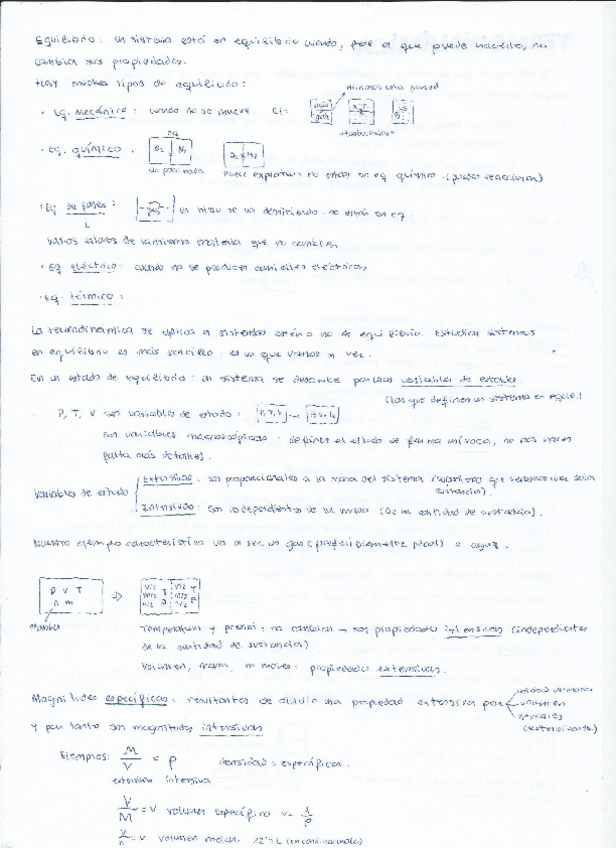 Equilibrio: un sistema está en equilibrio cuando, pese a que puede hacerlo, no
cambia sus propiedades.
Hay muchos tipos de equilibrio:
· Eq. mecánico: cuando no se mueve. Ej:
· Eq. químico:
Puede explotar: no están en eq químico (pueden reaccionar)
· Eq de fases: un hielo se va derritiendo: no están en eq.
varios estados de la misma materia que no cambien
· Eq eléctrico: cuando no se producen corrientes eléctricas
· Eq. térmico:
La termodinámica se aplica a sistemas estén o no en equilibrio. Estudiar sistemas
en equilibrio es más sencillo: es lo que vamos a ver.
En un estado de equilibrio: un sistema se describe por las variables de estado.
(las que definen un sistema en equil.)
P, T, V son variables de estado:
son variables macroscópicas: definen el estado de forma unívoca, no nos hacen
falta más detalles.
Variables de estado
Extensivas: son proporcionales a la masa del sistema
sustancia).
Intensivas: son independientes de su masa (de la cantidad de sustancia).
Nuestro ejemplo característico va a ser un gas (preferiblemente ideal) o agua.
P V T
n m
moles
⇒
V/2 V/2 T
m/2 m/2 P
n/2 n/2
Temperatura y presión: no cambian → son propiedades intensivas (independientes
de la cantidad de sustancia)
Volumen, masa, n moles: propiedades extensivas.
Magnitudes específicas: resultantes de dividir una propiedad extensiva por
unidad de masa
volumen
nº moles
(extensivas)
y por tanto son magnitudes intensivas
Ejemplos: M/V = ρ densidad: específica.
extensiva intensiva
V/M = v volumen específico v = 1/ρ
V/n = v volumen molar 22'4 L (en cond. normales)